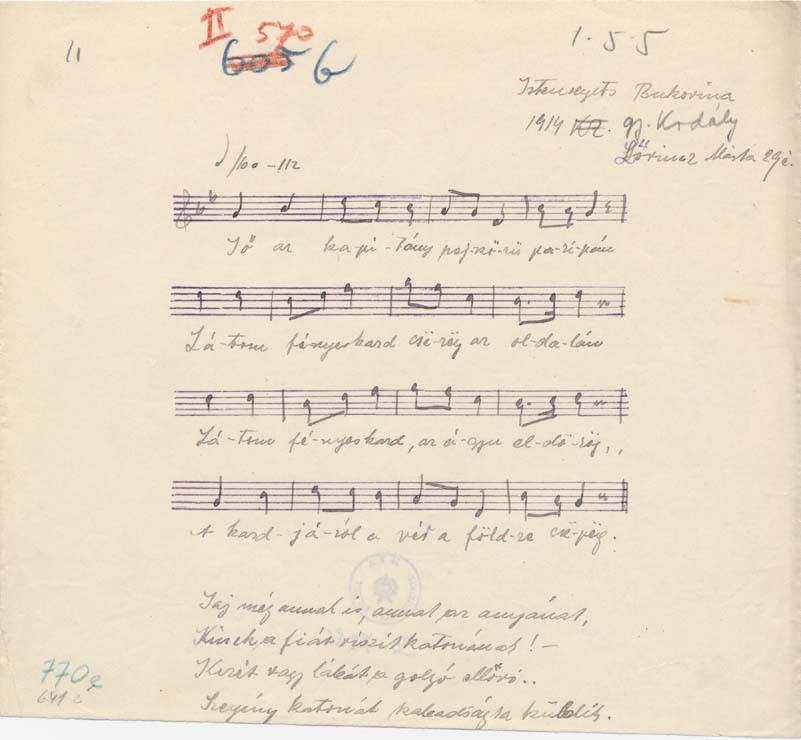 II 570
1 · 5 5
11
6056
Istensegíts Bukovina
1914 KZ. gj. Kodály
Lőrincz Márta 29 é.
100-112
Jő az ka-pi-tány pej-kö-rü pa-ri-pán
Lá-tom fé-nyes kard csë-rëg az ol-da-lán
Lá-tom fé-nyes kard, az á-gyu el-dö-rëg,,
A kard-já-ról a vér a föld-re csë-pëg.
Jaj még annak is, annak az anyának,
Kinek a fiát viszik katonának! -
Kezét vagy lábát a golyó ellövi..
Szegény katonát szabadságra küldik.
770e
641